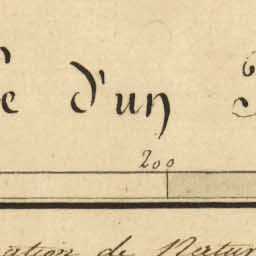 e d'un
200
ation de Natur